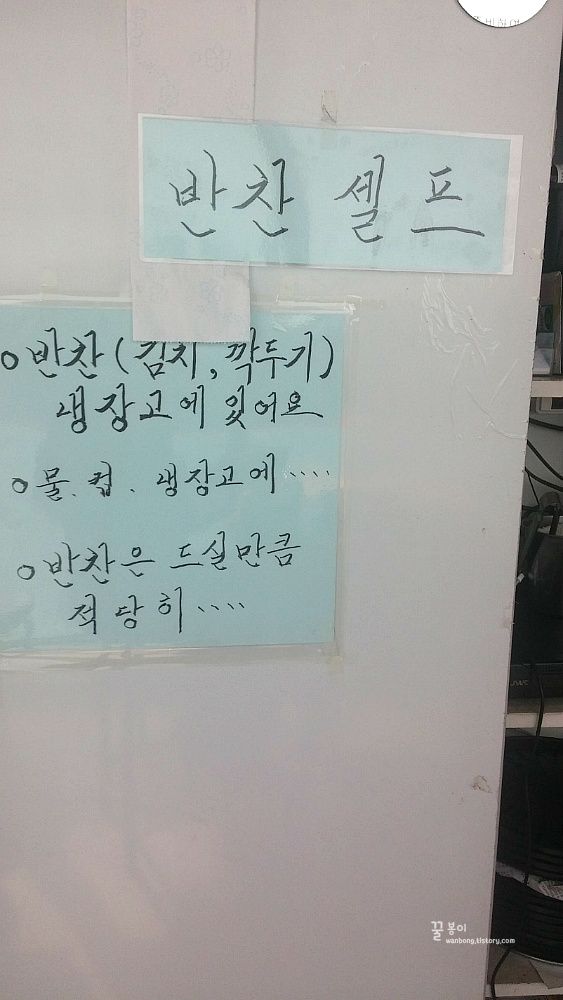 반찬 셀프
o 반찬 (김치, 깍두기)
냉장고에 있어요
o 물. 컵. 냉장고에 ····
o 반찬은 드실만큼
적당히 ····
JVC
꿀 봉이
wanbong.tistory.com